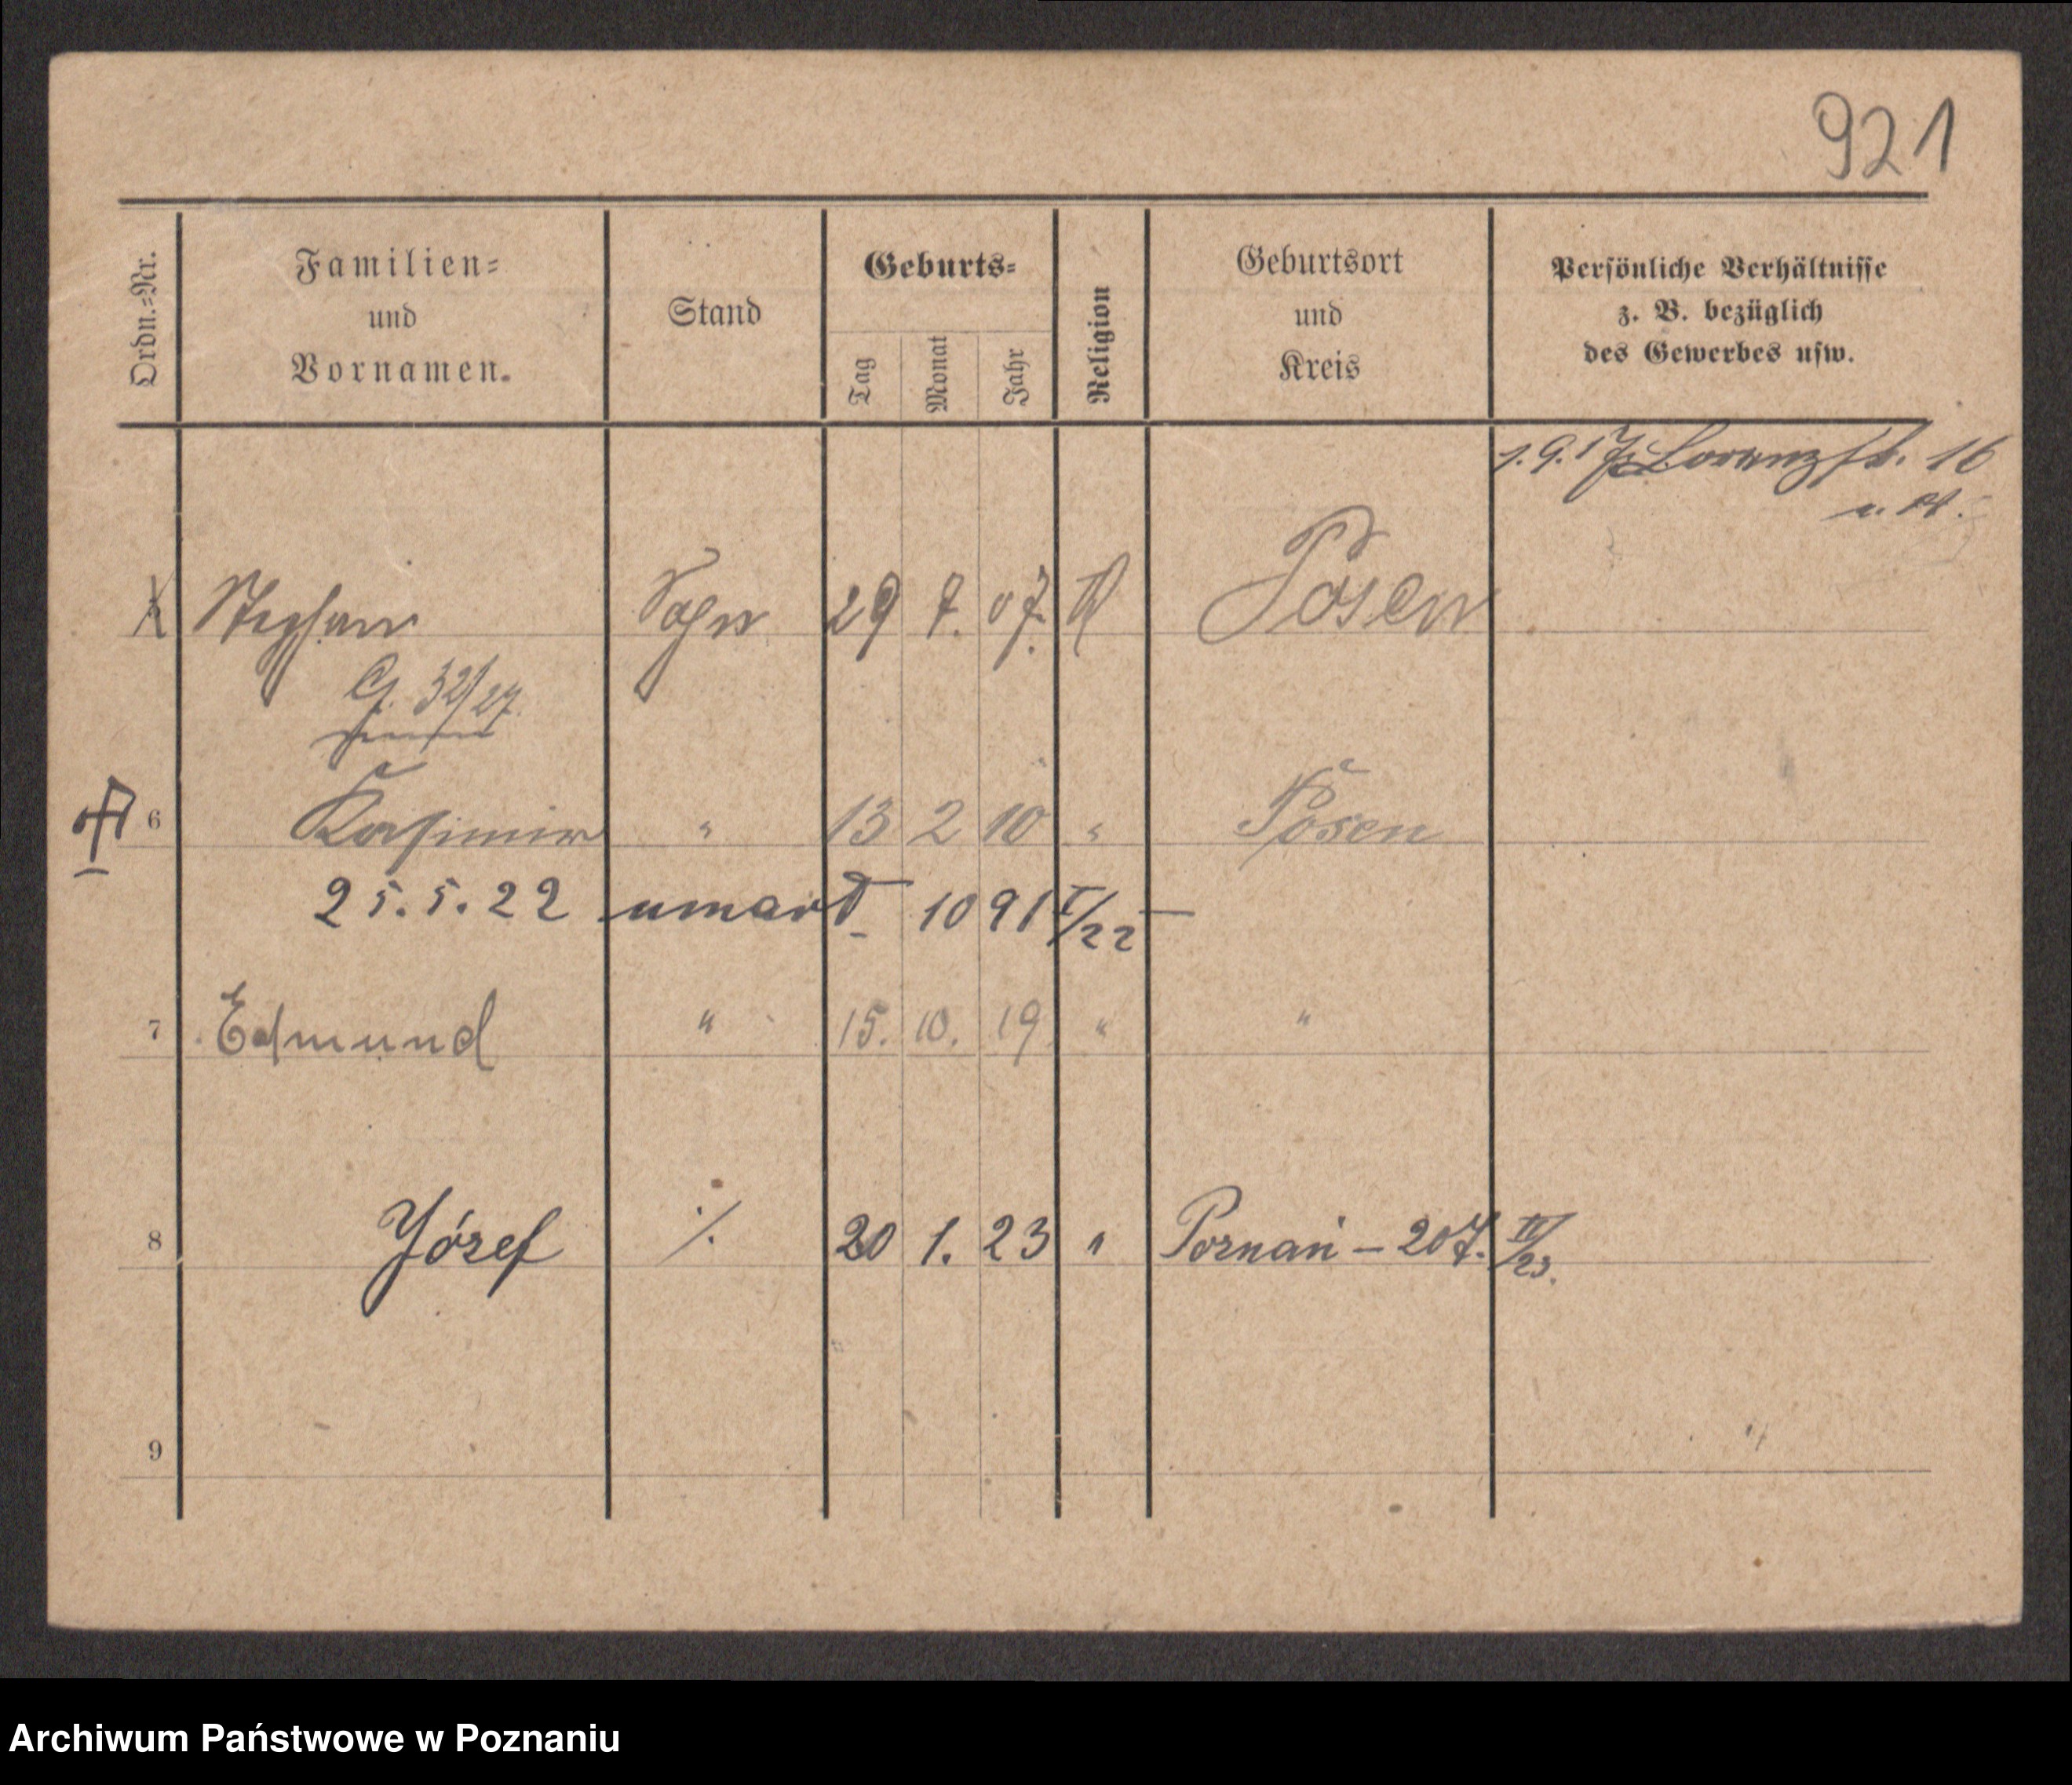 921
Ordn.=Nr.
Familien=
und
Vornamen.
Stand
Geburts=
Tag
Monat
Jahr
Religion
Geburtsort
und
Kreis
Persönliche Verhältnisse
z. B. bezüglich
des Gewerbes usw.
1.9.17 Lorenzstr. 16
Stephan Sohn 29 7. 07. K Posen
G. 32/27.
6 Kasimir " 13 2 10 " Posen
25.5.22 umarł 1091 V/22
7 Edmund " 15. 10. 19 " "
8 Józef ./. 20 1. 23 " Poznań – 207. IV/23.
9
Archiwum Państwowe w Poznaniu